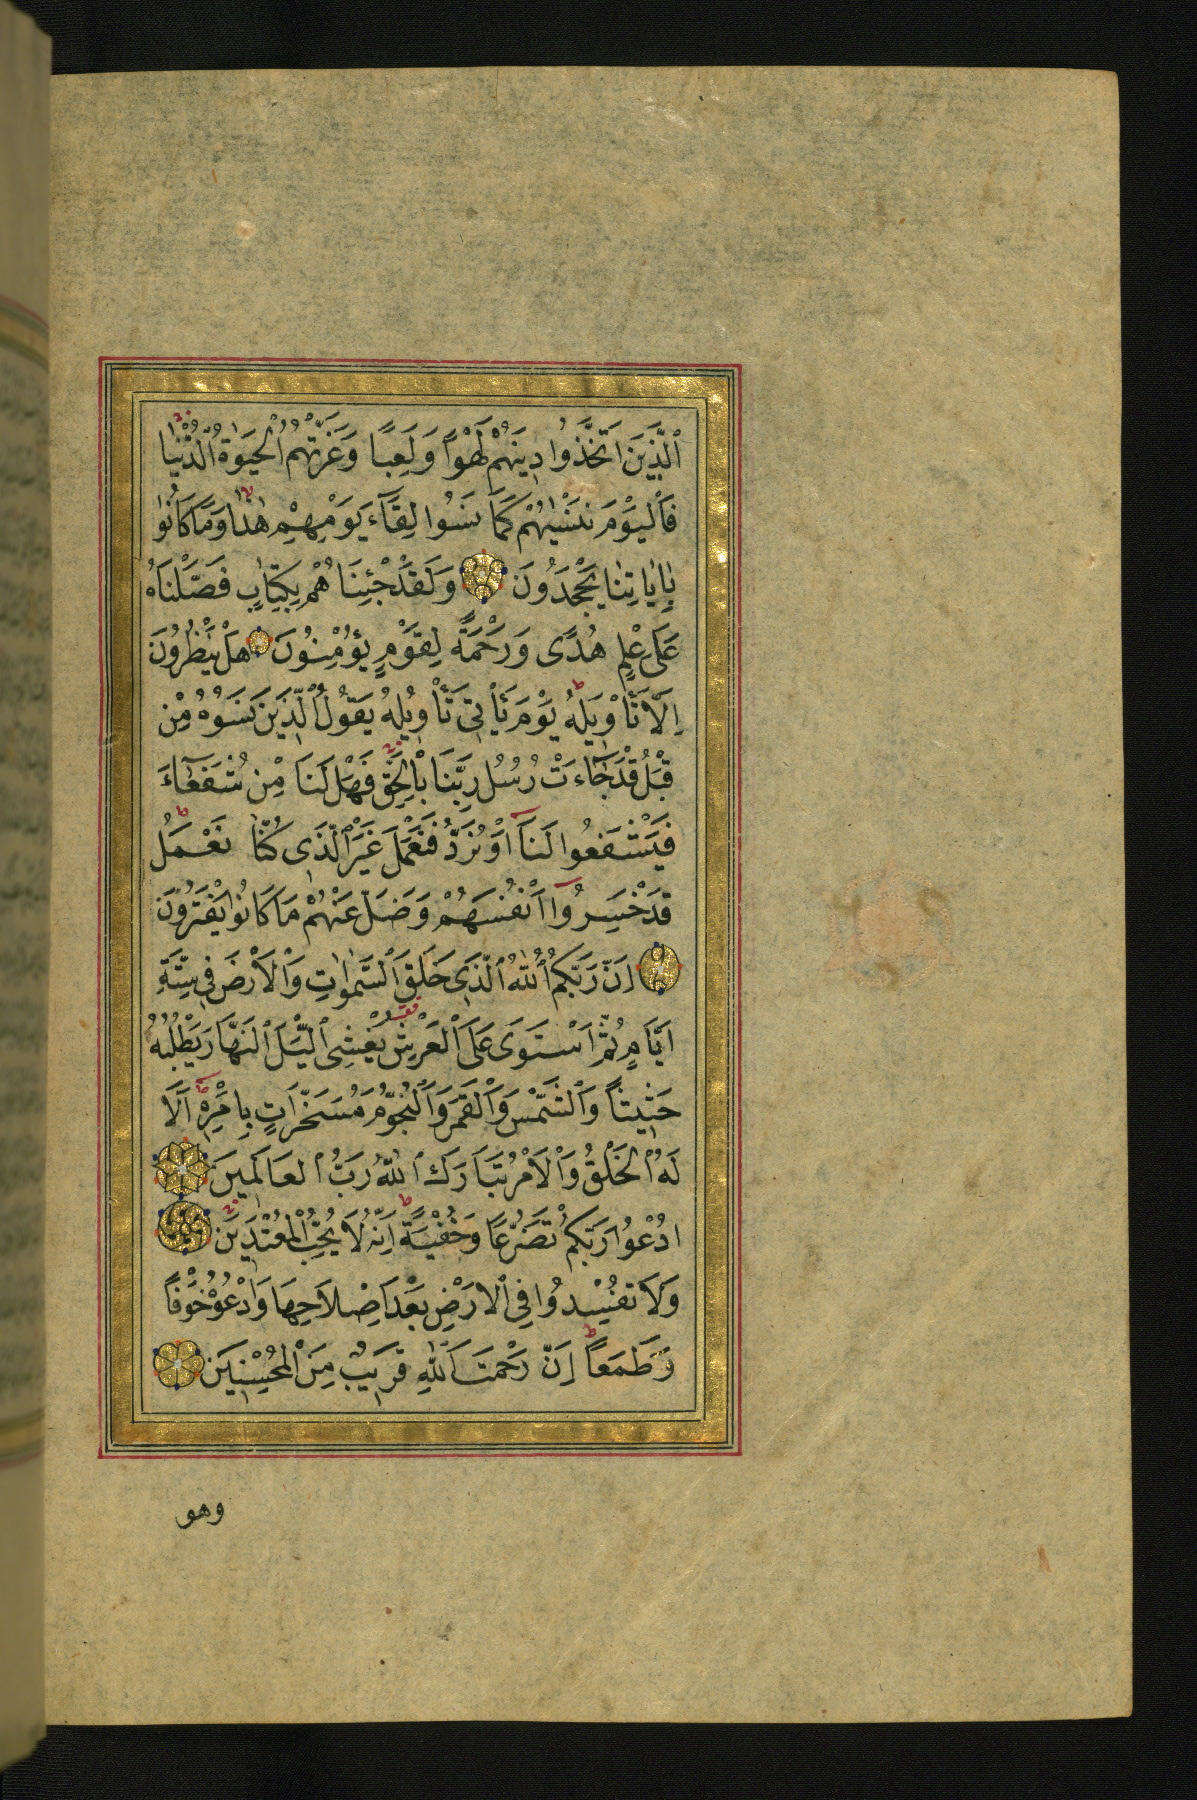 ٱلَّذِينَ ٱتَّخَذُوا دِينَهُمْ لَهْوًا وَلَعِبًا وَغَرَّتْهُمُ ٱلْحَيٰوةُ ٱلدُّنْيَا
فَٱلْيَوْمَ نَنْسٰيهُمْ كَمَا نَسُوا لِقَآءَ يَوْمِهِمْ هٰذَا وَمَا كَانُوا
بِاٰيَاتِنَا يَجْحَدُونَ وَلَقَدْ جِئْنَاهُمْ بِكِتَابٍ فَصَّلْنَاهُ
عَلَى عِلْمٍ هُدًى وَرَحْمَةً لِقَوْمٍ يُؤْمِنُونَ هَلْ يَنْظُرُونَ
اِلَّا تَأْوِيلَهُ يَوْمَ يَأْتِي تَأْوِيلُهُ يَقُولُ ٱلَّذِينَ نَسُوهُ مِنْ
قَبْلُ قَدْ جَآءَتْ رُسُلُ رَبِّنَا بِٱلْحَقِّ فَهَلْ لَنَا مِنْ شُفَعَآءَ
فَيَشْفَعُوا لَنَآ اَوْ نُرَدُّ فَنَعْمَلَ غَيْرَ ٱلَّذِى كُنَّا نَعْمَلُ
قَدْ خَسِرُوٓا اَنْفُسَهُمْ وَضَلَّ عَنْهُمْ مَا كَانُوا يَفْتَرُونَ
اِنَّ رَبَّكُمُ ٱللّٰهُ ٱلَّذِى خَلَقَ ٱلسَّمٰوَاتِ وَٱلْاَرْضَ فِي سِتَّةِ
اَيَّامٍ ثُمَّ ٱسْتَوَى عَلَى ٱلْعَرْشِ يُغْشِى ٱلَّيْلَ ٱلنَّهَارَ يَطْلُبُهُ
حَثِيثًا وَٱلشَّمْسَ وَٱلْقَمَرَ وَٱلنُّجُومَ مُسَخَّرَاتٍ بِاَمْرِهِ اَلَا
لَهُ ٱلْخَلْقُ وَٱلْاَمْرُ تَبَارَكَ ٱللّٰهُ رَبُّ ٱلْعَالَمِينَ
اُدْعُوا رَبَّكُمْ تَضَرُّعًا وَخُفْيَةً اِنَّهُ لَا يُحِبُّ ٱلْمُعْتَدِينَ
وَلَا تُفْسِدُوا فِي ٱلْاَرْضِ بَعْدَ اِصْلَاحِهَا وَٱدْعُوهُ خَوْفًا
وَطَمَعًا اِنَّ رَحْمَتَ ٱللّٰهِ قَرِيبٌ مِنَ ٱلْمُحْسِنِينَ
وهو